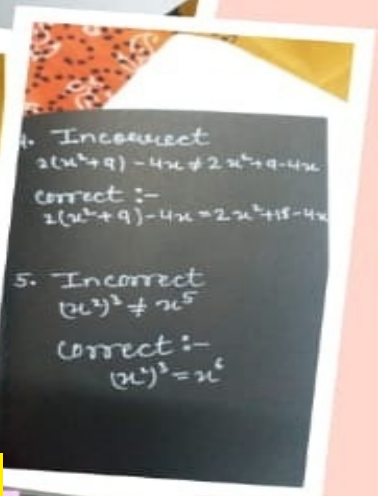 4. Incorrect
2(x²+9)-4x≠2x²+9-4x
correct :-
2(x²+9)-4x=2x²+18-4x
5. Incorrect
(x²)³≠x⁵
correct :-
(x²)³=x⁶